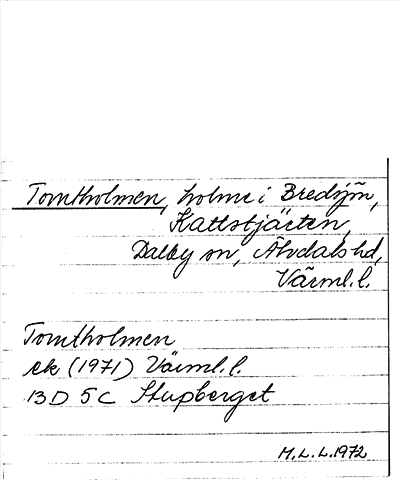 Tomtholmen, holme i Bredsjön,
Kattstjärten,
Dalby sn, Älvdals hd,
Värml. l.
Tomtholmen
ek (1971) Värml. l.
13D 5C Stupberget
M.L.L. 1972